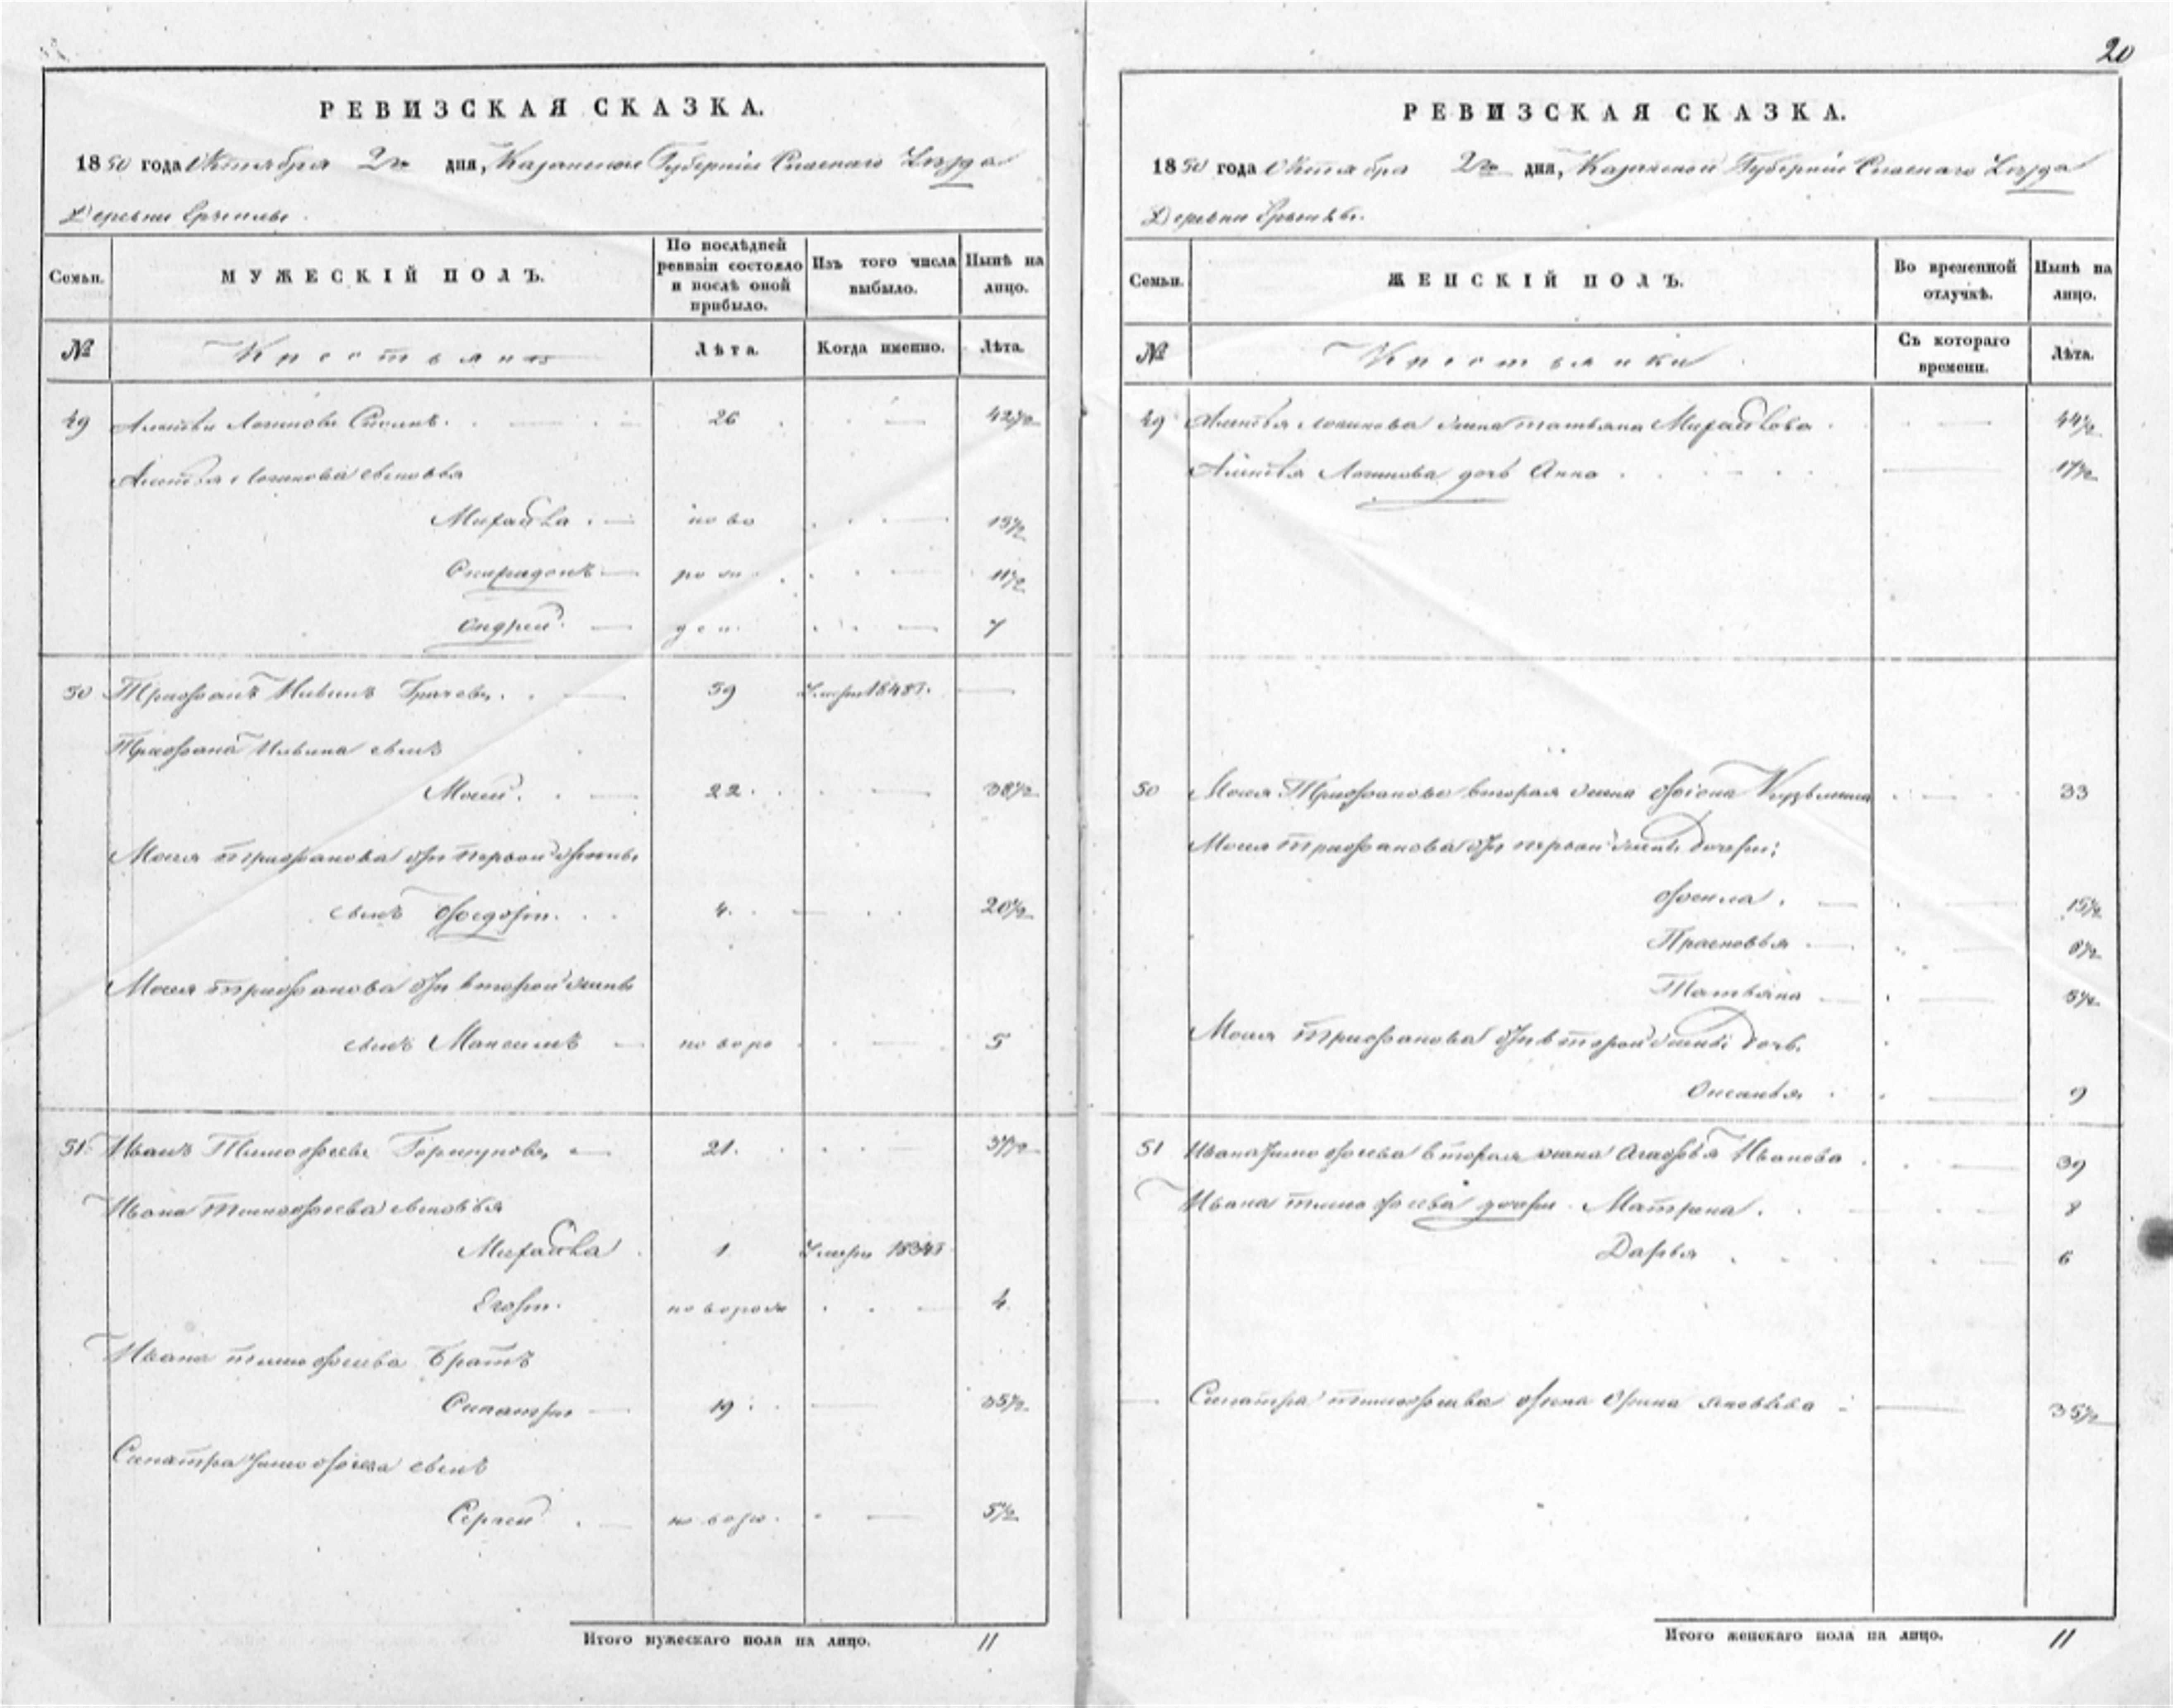 20
РЕВИЗСКАЯ СКАЗКА.
1850 года Октября 2го дня, Казанской Губерніи Спаскаго Уезда
Деревни
Семьи.
МУЖЕСКІЙ ПОЛЪ.
По послѣдней ревизіи состояло и послѣ оной прибыло.
Изъ того числа выбыло.
Нынѣ на лицо.
№
Крестьяне
Лѣта.
Когда именно.
Лѣта.
49 26 42½
Логинова сыновья
Михайла ново 15½
Спиридонъ рож 11½
Андрей ден 7
50 Трифонъ 59 Умеръ 184
Трифона сынъ
Мосей 22 38½
Мосея Трифонова отъ первой жены
сынъ Федотъ 4 20½
Мосея Трифонова отъ второй жены
сынъ Максимъ новоро 5
51 Иванъ Тимофеевъ Горшуновъ 21 37½
Ивана Тимофеева сыновья
Михайла 1 Умеръ
Егоръ новорож 4
Ивана Тимофеева братъ
Сипатръ 19 35½
Сипатра Тимофеева сынъ
Сергей новорo 5½
Итого мужескаго пола на лицо. 11
РЕВИЗСКАЯ СКАЗКА.
1850 года Октября 2го дня, Казанской Губерніи Спаскаго Уезда
Деревни
Семьи.
ЖЕНСКІЙ ПОЛЪ.
Во временной отлучкѣ.
Нынѣ на лицо.
№
Крестьянки
Съ котораго времени.
Лѣта.
49 Логинова жена Татьяна Михайлова 44½
Логинова дочь Анна 17½
50 Мосея Трифонова вторая жена Кузьмина 33
Мосея Трифонова отъ первой жены дочери:
15½
Прасковья 8½
Татьяна 5½
Мосея Трифонова отъ второй жены дочь
Оксинья 9
51 Ивана Тимофеева вторая жена Агафья Иванова 39
Ивана Тимофеева дочери Матрена 8
Дарья 6
Сипатра Тимофеева жена Орина Яковлева 35½
Итого женскаго пола на лицо. 11